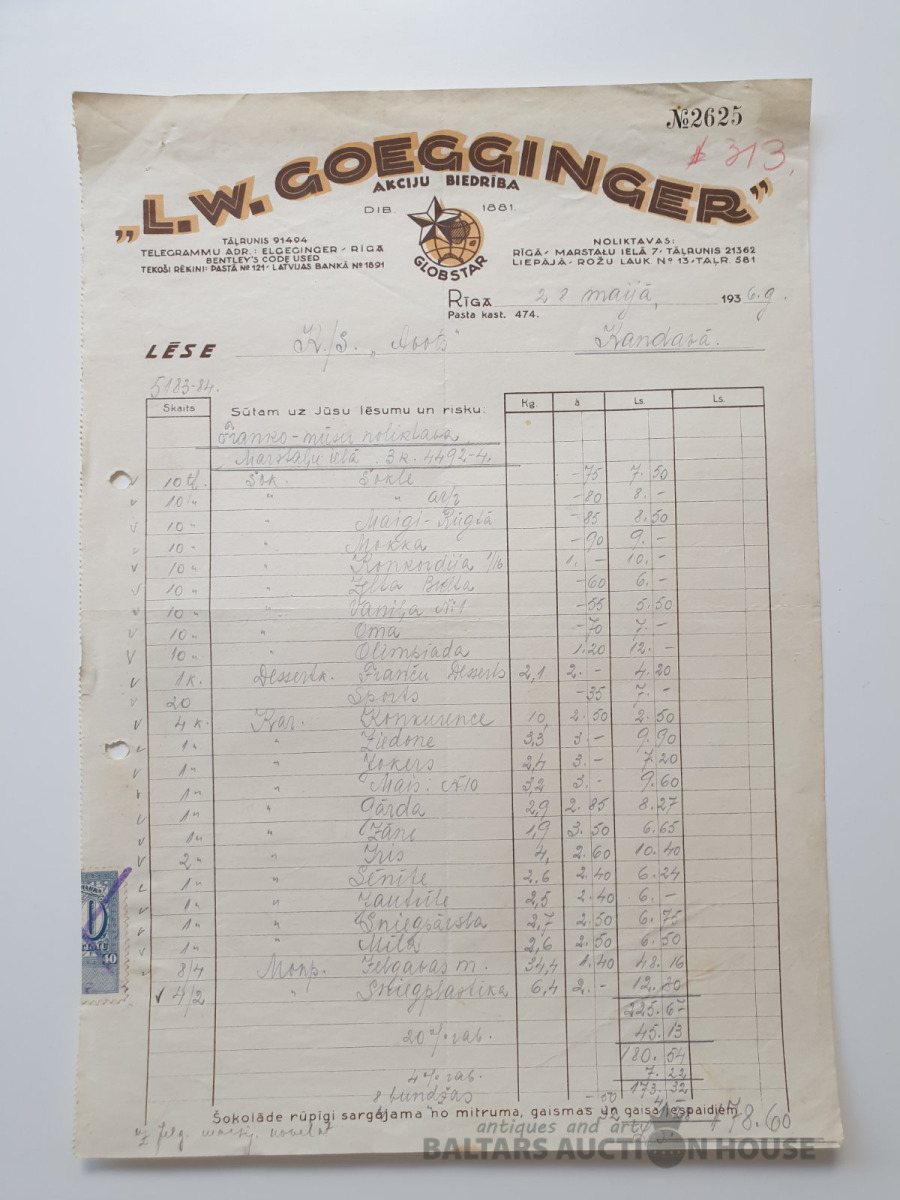 №2625
$ 313,
„L.W. GOEGGINGER”
AKCIJU BIEDRĪBA
DIB. 1881.
TĀLRUNIS 91494
TELEGRAMMU ADR.: ELGEGINGER - RĪGĀ
BENTLEY'S CODE USED
TEKOŠI RĒĶINI: PASTĀ № 121 - LATVIJAS BANKĀ № 1891
GLOBSTAR
NOLIKTAVAS:
RĪGĀ - MARSTAĻU IELĀ 7 - TĀLRUNIS 21362
LIEPĀJĀ - ROŽU LAUK. № 13 - TAĻR. 581
RĪGĀ 28 maijā, 1936. g.
Pasta kast. 474.
LĒSE K./S. „Avots" Kandavā.
5183-84.
Skaits Sūtam uz Jūsu lēsumu un risku: Kg. à Ls. Ls.
Franko-mūsu noliktava
Marstaļu ielā. 3k. 4492-4.
10 tf. Šok. Sokle -75 7.50
10 " " " ar/z -80 8.-
10 " " Maigi-Rūgtā -85 8.50
10 " " Mokka -90 9.-
10 " " Konkordija 1/6 1.- 10.-
10 " " Zelta Bulta -60 6.-
10 " " Vaniļa №1 -55 5.50
10 " " Oma -70 7.-
10 " " Olimpiada 1.20 12.-
1 k. Dessertk. Franču Desserts 2,1 2.- 4.20
20 Sports -35 7.-
4 k. Kar. Konkurence 10, 2.50 2.50
1 " " Ziedone 3,3 3.- 9.90
1 " " Žokers 2,4 3.- 7.20
1 " " Mais: №10 3,2 3.- 9.60
1 " " Gārda 2,9 2.85 8.27
1 " " Zāni 1,9 3.50 6.65
2 " " Iris 4, 2.60 10.40
1 " " Sēnīte 2,6 2.40 6.24
1 " " Zautrīte 2,5 2.40 6.-
1 " " Sniegpārsla 2,7 2.50 6.75
1 " " Milk 2,6 2.50 6.50
8/4 Monp. Jelgavas m. 34,4 1.40 48.16
4/2 " Sniegplastika 6,4 2.- 12.80
225.67
20% rab. 45.13
180.54
4% rab. 7.22
173.32
8 bundžas -50
Šokolāde rūpīgi sargājama no mitruma, gaismas un gaisa iespaidiem
178.60
40
antiques and arty
BALTARS AUCTION HOUSE